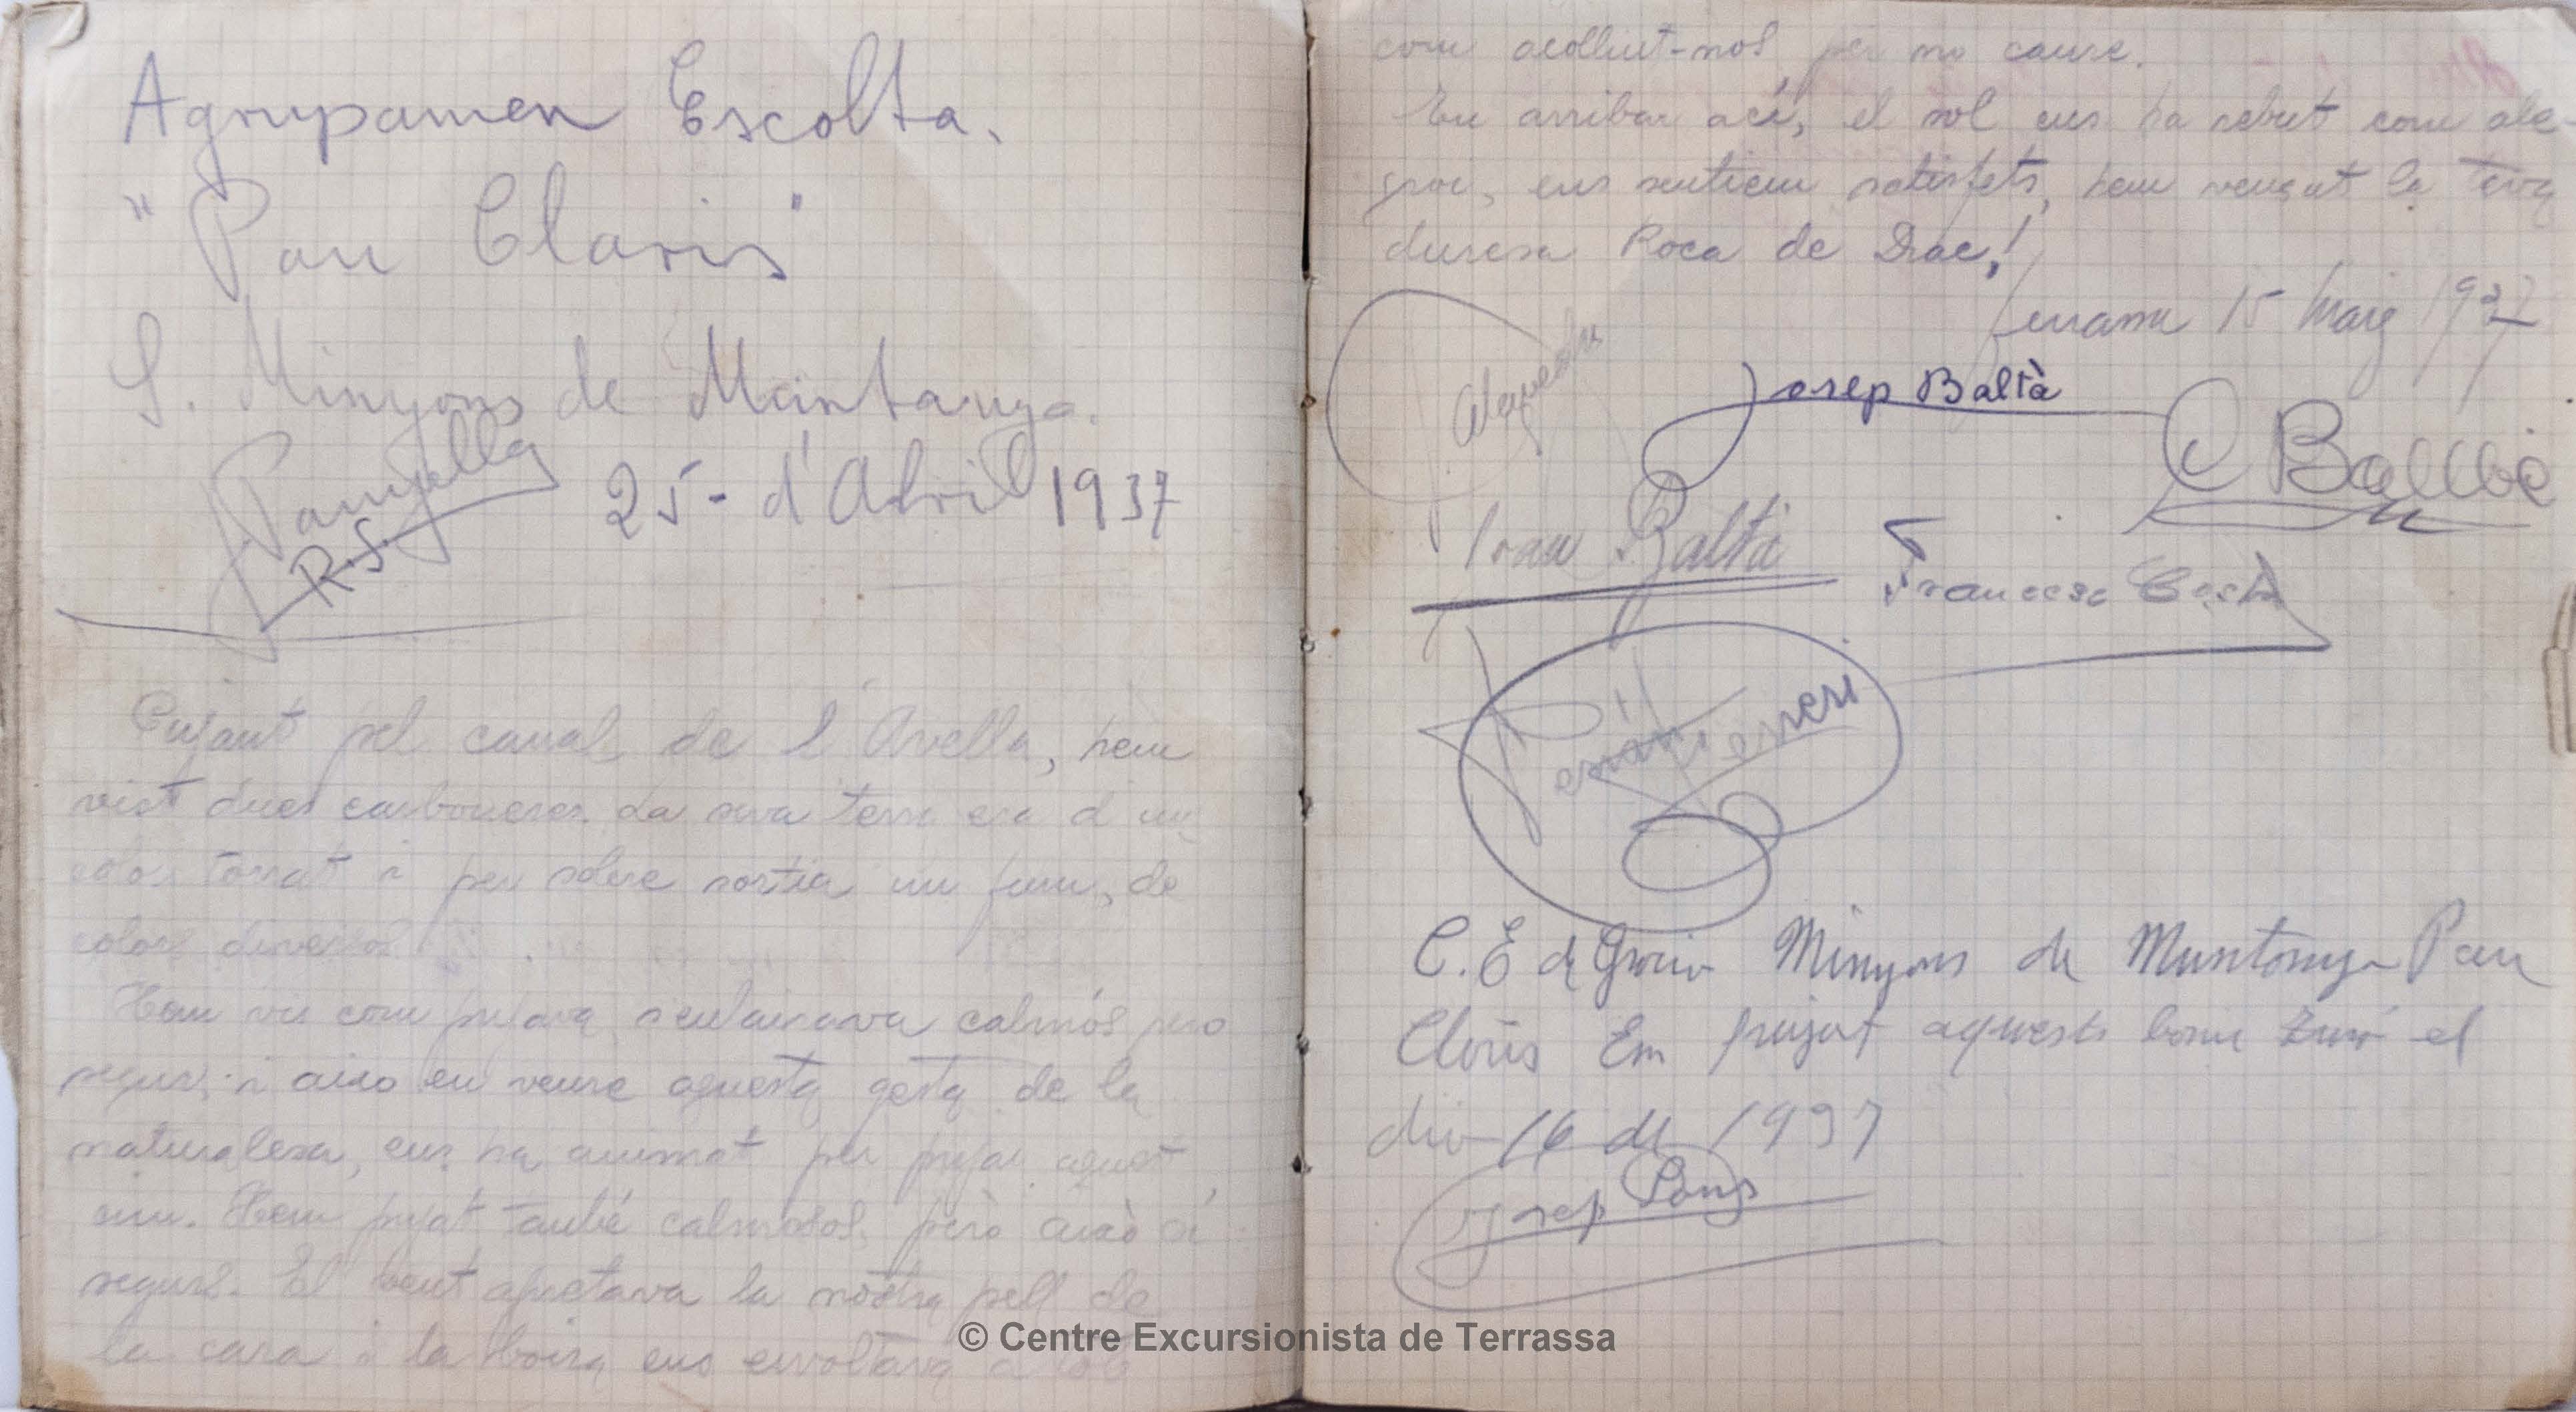 Agrupamen Escolta.
"Pau Claris"
S. Minyons de Montanya.
Panyella
R.S.
25- d'Abril 1937
Pujant pel canal de l'Avella, hem
vist dues carboneres. La seva terra era d'un
color torrat i per sobre sortia un fum, de
colors diversos
Hem vis com pujava calmós pero
segur, i aixo en veure aquesta gesta de la
naturalesa, ens ha animat per pujar aquest
cim. Hem pujat també calmosos, però això sí
segurs. El vent afectava la nostra pell de
la cara i la boira ens envoltava
com acollint-nos per no caure.
En arribar ací, el sol ens ha rebut com ale-
groi, ens sentiem satisfets, hem vençut la teva
duresa Roca de Drac!
15 Maig 1937
Josep Baltà
C Ballbé
Joan Baltà
Francesc Costa
C. E de Gracia Minyons de Muntanya Pau
Claris Em pujat aquest bonic turó el
dia 16 de 1937
Josep Pons
© Centre Excursionista de Terrassa